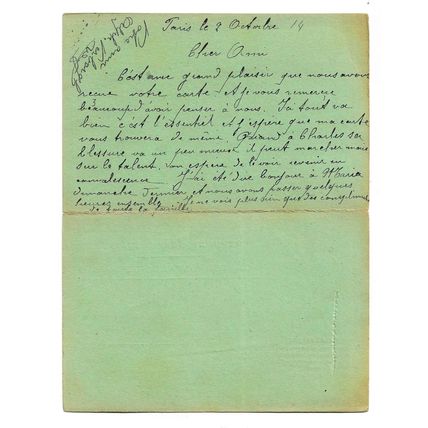 Paris le 2 Octobre 14
Cher Ami
C'est avec grand plaisir que nous avons
recue votre carte et je vous remercie
beaucoup d'avoir penser à nous. Ici tout va
bien c'est l'essentiel et j'espere que ma carte
vous trouvera de même. Quand à Charles sa
blessure va un peu mieux il peut marcher mais
sur le talent, on espere de le voir revenir en
convalescence. J'ai été dire bonjour à Maria
dimanche dernier et nous avons passer quelques
heures ensemble. Je ne vois plus rien que des compliments
de toute la famille